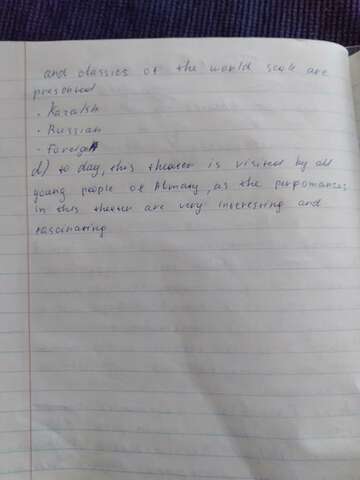 and classics of the world scale are
presented
- Kazakh
- Russian
- Foreign
d) to day, this theater is visited by all
young people of Almaty, as the perfomances
in this theater are very interesting and
fascinating